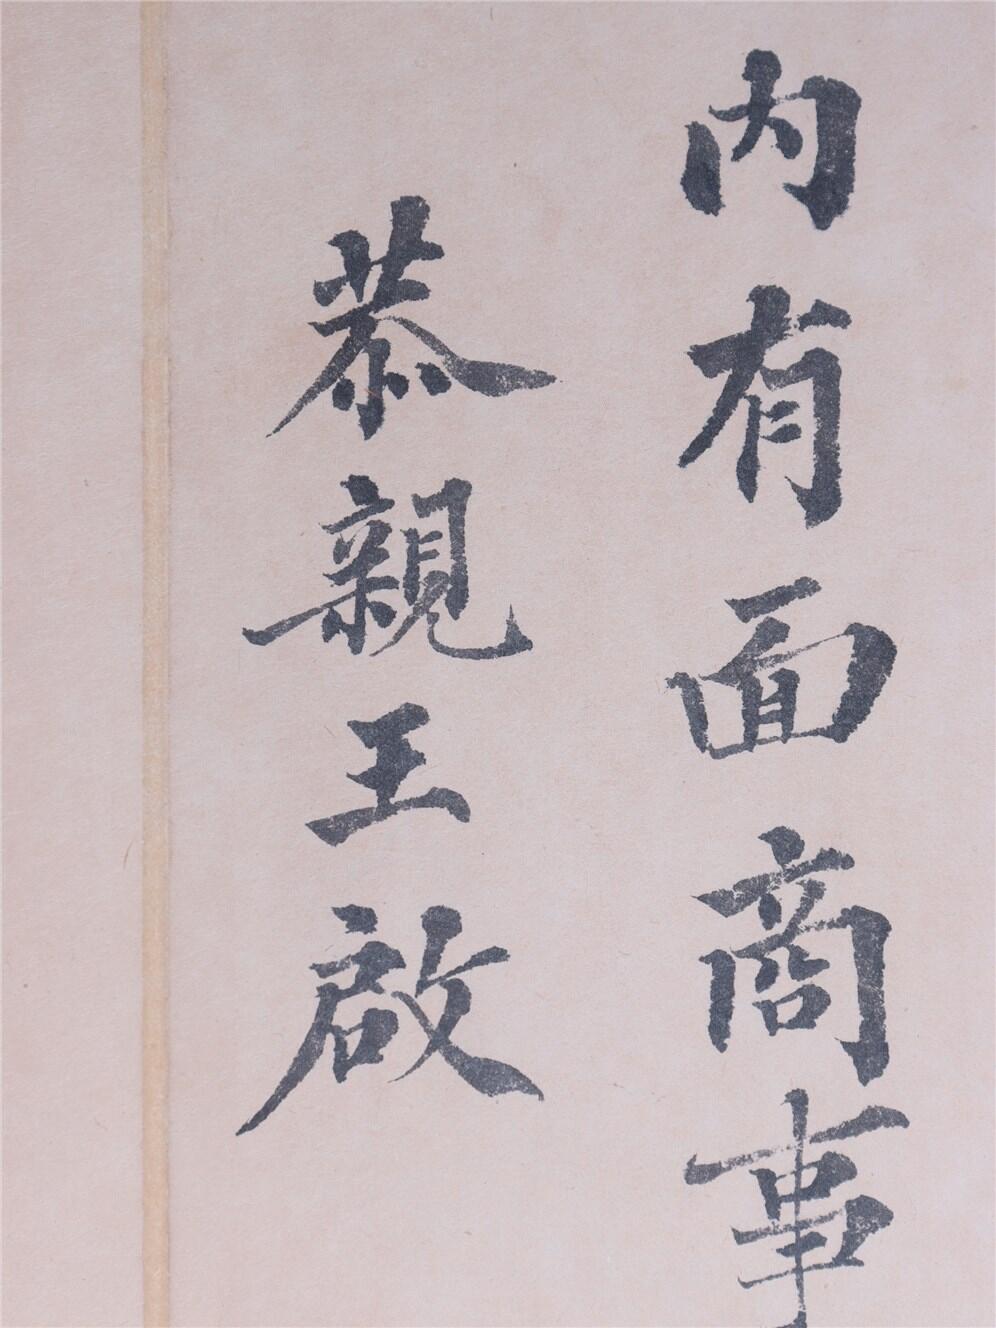 内有面商事
恭親王啟